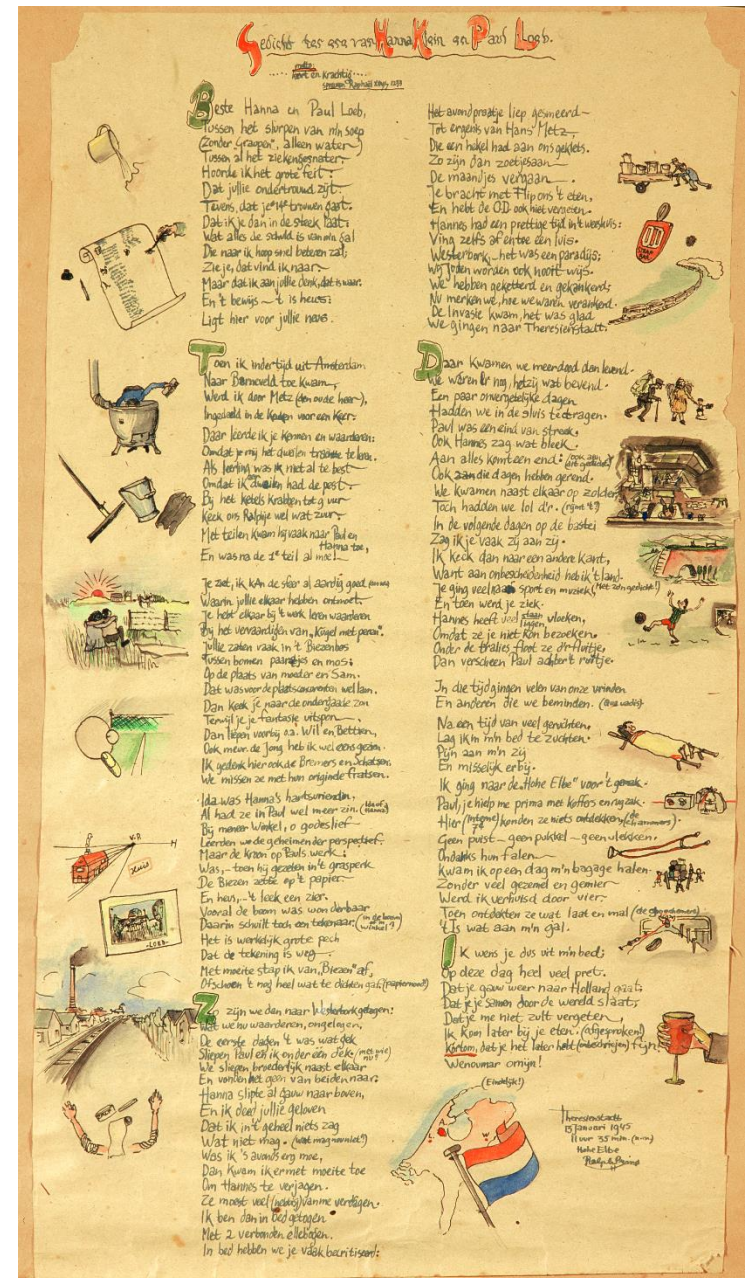 Gedicht ter ere van Hanna Klein en Paul Loeb.
motto:
kort en krachtig.....
Beste Hanna en Paul Loeb,
Tussen het slurpen van m'n soep
(Zonder "Graupen", alleen water)
Tussen al het ziekengesnater
Hoorde ik het grote feit:
Dat jullie ondertrouwd zijt.
Tevens, dat je trouwen gaat.
Dat ik je dan in de steek laat:
Wat alles de schuld is van m'n gal
Die naar ik hoop snel beteren zal,
Zie je, dat vind ik naar.
Maar dat ik aan jullie denk, dat is waar.
En 't bewijs - 't is heus:
Ligt hier voor jullie neus.
Toen ik indertijd uit Amsterdam
Naar Barneveld toe kwam,
Werd ik door Metz (den oude heer),
Ingedeeld in de voor een keer.
Daar leerde ik je kennen en waarderen:
Omdat je mij het dweilen trachtte te leren.
Als leerling was ik niet al te best
Omdat ik aan dweilen had de pest.
Bij het ketels krabben tot 9 uur
Keek ons Ralfije wel wat zuur.
Met teilen kwam hij vaak naar Paul en
Hanna toe,
En was na de 1e teil al moe!
Je ziet, ik kan de sfeer al aardig goed
Waarin jullie elkaar hebben ontmoet.
Je hebt elkaar bij 't werk leren waarderen
Bij het vervaardigen van "Kugel met peren".
Jullie zaten vaak in 't Biezenbos
Tussen bomen paartjes en mos:
Op de plaats van moeder en Sam.
Dat was voor de plaatsconcurrenten wel lam.
Dan keek je naar de ondergaande zon
Terwijl je je fantasie uitspon.
Dan liepen voorbij o.a. Wil en Bettien,
Ook mevr. de Jong heb ik wel eens gezien.
Ik gedenk hier ook de Bremers en Schatsen.
We missen ze met hun originele fratsen.
Ida was Hanna's hartsvriendin,
Al had ze in Paul wel meer zin. (Ida of Hanna?)
Bij meneer Winkel, o godeslief
Leerden we de geheimen der perspectief.
Maar de kroon op Pauls werk:
Was, - toen hij gezeten in 't grasperk
De Biezen zette op 't papier
En heus, - 't leek een zier.
Vooral de boom was wonderbaar
Daarin schuilt toch een tekenaar. (in de boom of in Winkel?)
Het is werkelijk grote pech
Dat de tekening is weg
Met moeite stap ik van "Biezen" af,
Ofschoon 't nog heel wat te dichten gaf. (papiernood!)
Zo zijn we dan naar Westerbork getogen:
Wat we nu waarderen, ongelogen,
De eerste dagen 't was wat gek
Sliepen Paul en ik onder een dek. (met wie nu?)
We sliepen broederlijk naast elkaar
En vonden het geen van beiden naar.
Hanna slipte al gauw naar boven,
En ik deed jullie geloven
Dat ik in 't geheel niets zag
Wat niet mag. (wat mag nou niet?)
Was ik 's avonds erg moe,
Dan kwam ik er met moeite toe
Om Hannes te verjagen.
Ze moest veel van me verdragen.
Ik ben dan in bed getogen
Met 2 verbonden ellebogen.
In bed hebben we je vaak becritiseerd:
Het avondpraatje liep gesmeerd
Tot ergernis van Hans Metz,
Die een hekel had aan ons geklets.
Zo zijn dan zoetjesaan
De maandjes vergaan.
Je bracht met Flip ons 't eten,
En hebt de O.D. ook niet vergeten.
Hannes had een prettige tijd in 't weeshuis:
Ving zelfs af en toe een luis.
Westerbork, - het was een paradijs;
Wij Joden worden ook nooit wijs.
We hebben geketterd en gekankerd;
Nu merken we, hoe we waren verankerd.
De Invasie kwam, het was glad
We gingen naar Theresienstadt.
Daar kwamen we meer dood dan levend.
We waren er nog, hetzij wat bevend.
Een paar onvergetelijke dagen
Hadden we in de sluis te dragen.
Paul was een eind van streek.
Ook Hannes zag wat bleek.
Aan alles komt een end: (ook aan dit gedicht)
Ook aan die dagen hebben gerend.
We kwamen naast elkaar op zolder
Toch hadden we lol d'r. (rijmt 't?)
In de volgende dagen op de bastei
Zag ik je vaak zij aan zij.
Ik keek dan naar een andere kant,
Want aan onbescheidenheid heb ik 't land.
Je ging veel naar sport en muziek
En toen werd je ziek.
Hannes heeft veel staan liggen vloeken,
Omdat ze je niet kon bezoeken.
Onder de tralies floot ze d'r fluitje,
Dan verscheen Paul achter 't ruitje.
In die tijd gingen velen van onze vrinden
En anderen die we beminden.
Na een tijd van veel geruchten,
Lag ik in m'n bed te zuchten.
Pijn aan m'n zij
En misselijk erbij.
Ik ging naar de "Hohe Elbe" voor 't gemak.
Paul, je hielp me prima met koffers en rugzak.
Hier (interne) konden ze niets ontdekken.
Geen puist - geen pukkel - geen vlekken.
Ondanks hun falen
Kwam ik op een dag m'n bagage halen.
Zonder veel gezemel en gemier
Werd ik verhuisd door vier.
Toen ontdekten ze wat laat en mal
't Is wat aan m'n gal.
Ik wens je dus uit m'n bed;
Op deze dag heel veel pret.
Dat je gauw weer naar Holland gaat.
Dat je je samen door de wereld slaat;
Dat je me niet zult vergeten,
Ik kom later bij je eten. (afgesproken)
Kortom, dat je het later hebt fijn,
(Eindelijk!)
Theresienstadt
13 Januari 1945
11 uur 35 min.
Hohe Elbe
Huis
LOEB.